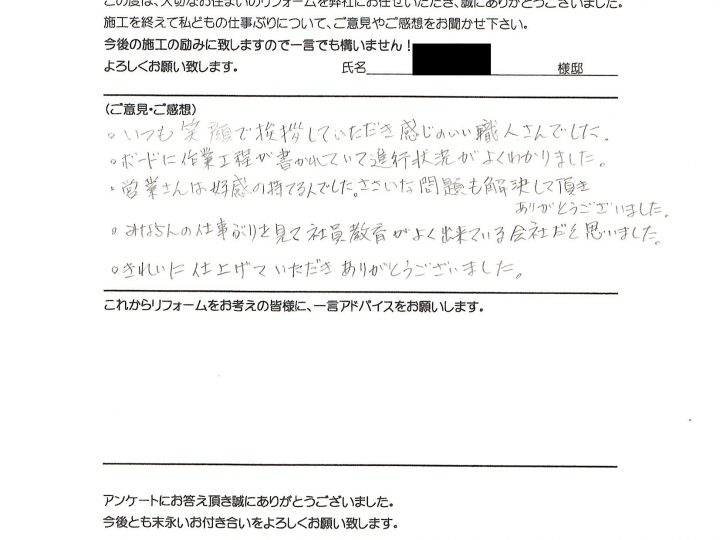 この度は、大切なお住まいのリフォームを弊社にお任せいただき、誠にありがとうございました。
施工を終えて私どもの仕事ぶりについて、ご意見やご感想をお聞かせ下さい。
今後の施工の励みに致しますので一言でも構いません!
よろしくお願い致します。 氏名 様邸
(ご意見・ご感想)
。いつも笑顔で挨拶していただき感じのいい職人さんでした。
。ボードに作業工程が書かれていて進行状況がよくわかりました。
・営業さんは好感の持てる人でした。ささいな問題も解決して頂き
ありがとうございました。
。みなさんの仕事ぶりを見て社員教育がよく出来ている会社だと思いました。
。きれいに仕上げていただきありがとうございました。
これからリフォームをお考えの皆様に、一言アドバイスをお願いします。
アンケートにお答え頂き誠にありがとうございました。
今後とも末永いお付き合いをよろしくお願い致します。